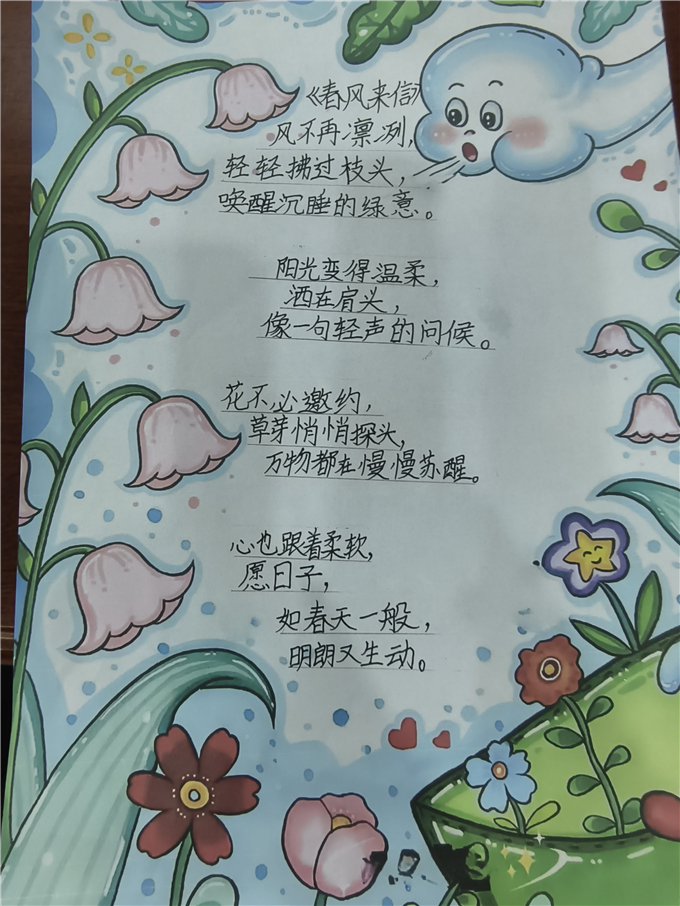 《春风来信》
风不再凛冽,
轻轻拂过枝头,
唤醒沉睡的绿意。
阳光变得温柔,
洒在肩头,
像一句轻声的问候。
花不必邀约,
草芽悄悄探头,
万物都在慢慢苏醒。
心也跟着柔软,
愿日子,
如春天一般,
明朗又生动。